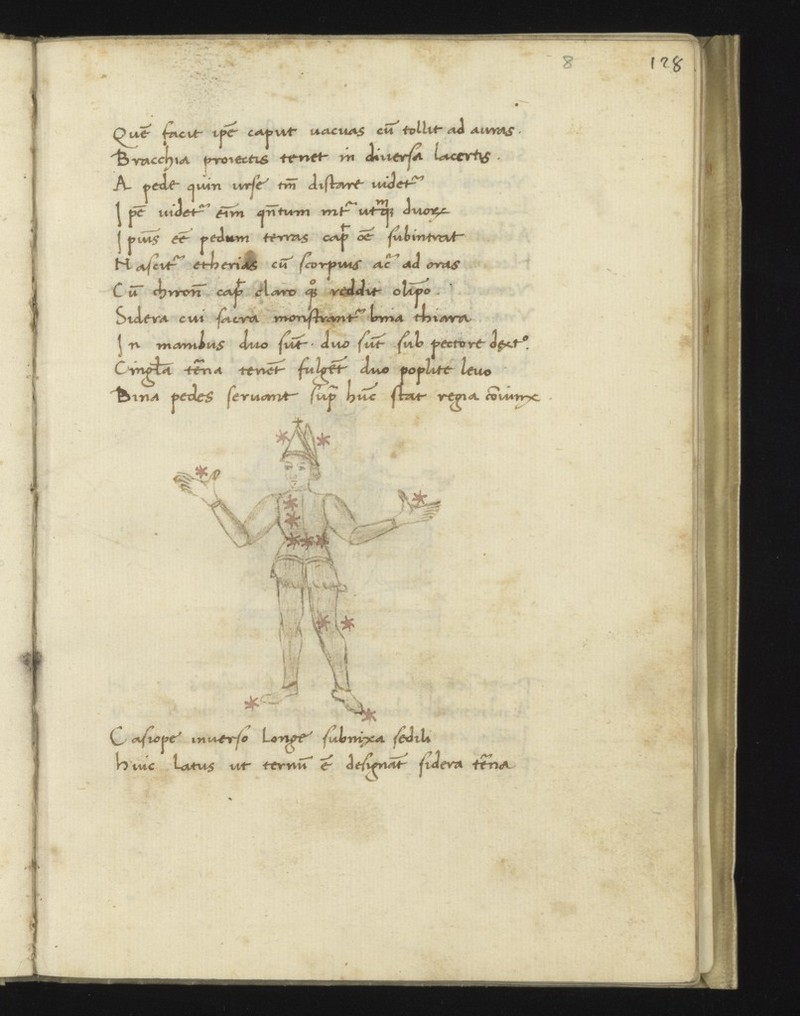 8 128
Quē facit ip̄e caput uacuas cū tollit ad auras.
Bracchia proiectis tenet in diuersa lacertis.
A pede quin urse tm̄ distare uidetr
Ip̄e uidetr eim̄ qn̄tum duorx
Ipius ēē pedum terras cap̄ ōe subintrat
Nascitr etherias cū scorpius ac ad oras
Cū chiron cap̄ claro qͦ reddit olīpo.
Sidera cui sacra monstrantr bina thiara
In manibus duo sūt. duo sūt sub pectore dextͦ.
Cingl̄a tēna tenēt fulgēt duo poplite leuo
Bina pedes seruant sup̄ hūc stat regia cōiunx.
Casiope inuerso longe subnixa sedili
huic latus ut ternū ē designāt sidera tēna